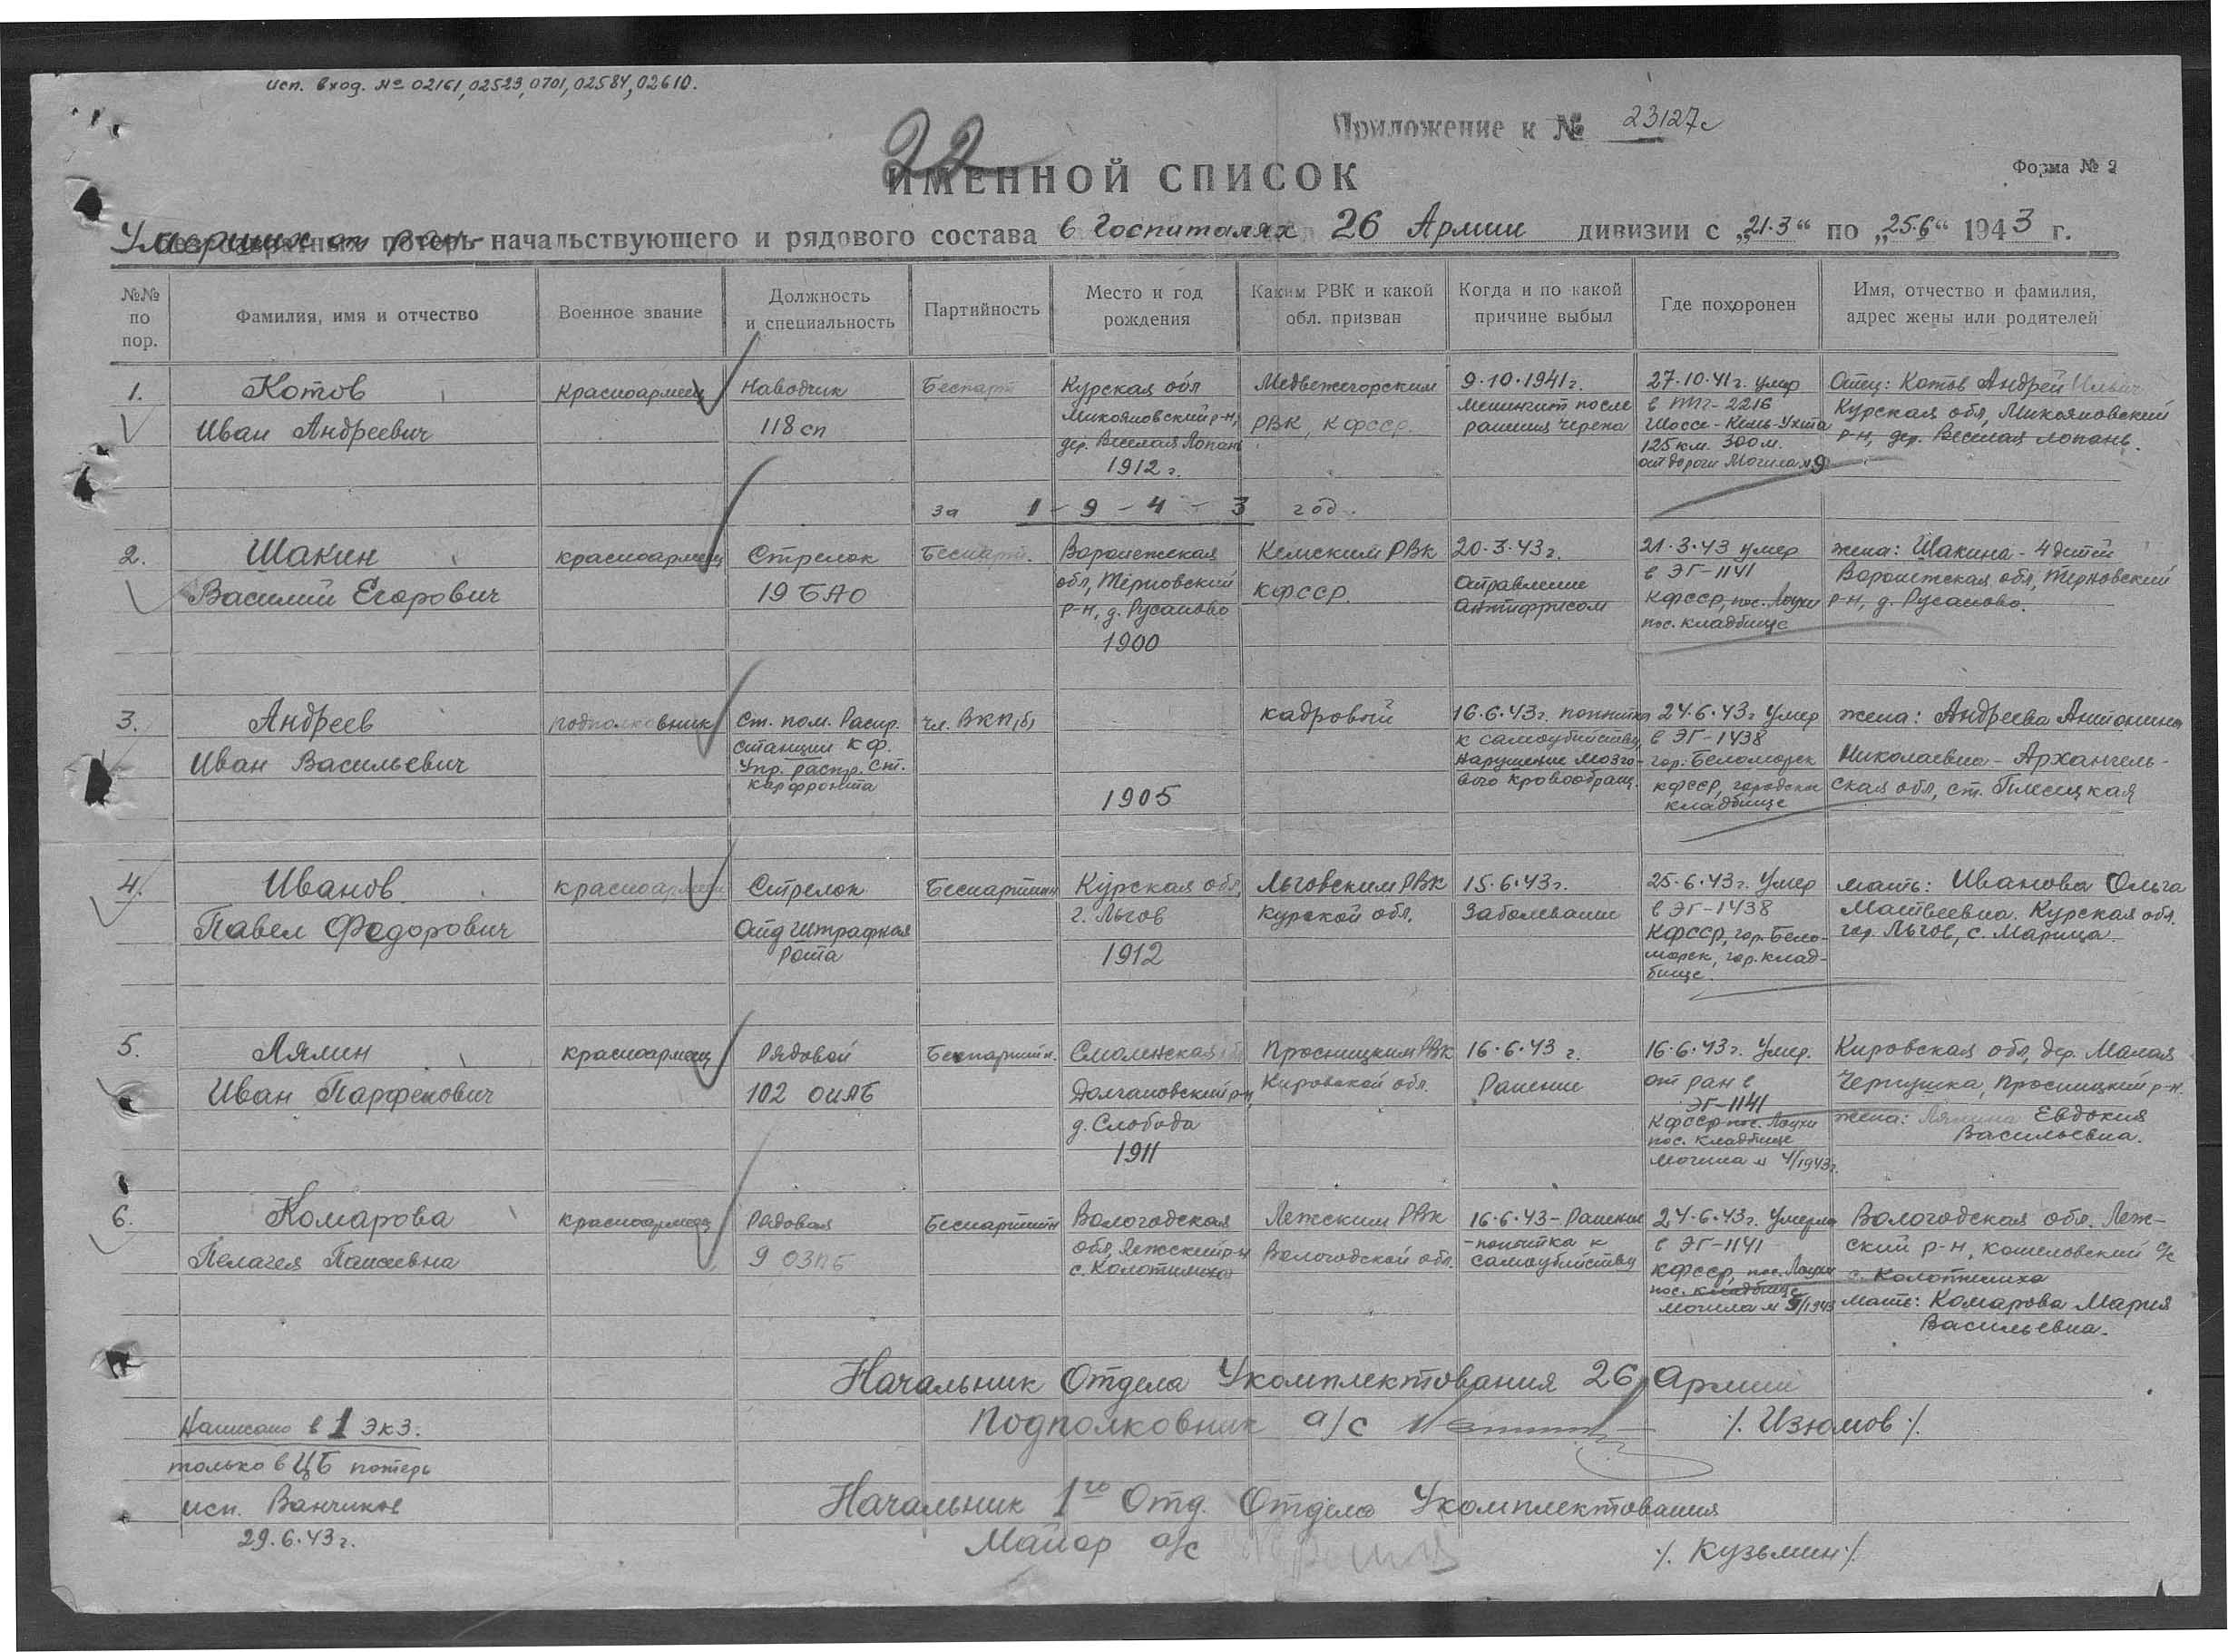 исп. вход. № 02161, 02523, 0701, 02584, 02610.
22
Приложение к № 23127с
ИМЕННОЙ СПИСОК
Форма № 2
Умерших от ран начальствующего и рядового состава в Госпиталях 26 Армии дивизии с „21.3“ по „25.6“ 1943 г.
№№ по пор.
Фамилия, имя и отчество
Военное звание
Должность и специальность
Партийность
Место и год рождения
Каким РВК и какой обл. призван
Когда и по какой причине выбыл
Где похоронен
Имя, отчество и фамилия, адрес жены или родителей
1.
Котов
Иван Андреевич
красноармеец
Наводчик
118 сп
Беспарт
Курская обл
Микояновский р-н,
дер. Веселая Лопань
1912 г.
Медвежегорским
РВК, КФССР.
9.10.1941г.
Менингит после
ранения черепа
27.10.41г. умер
в ППГ-2216
Шоссе-Кемь-Ухта
125 км. 300 м.
от дороги Могила №9
Отец: Котов Андрей Ильич
Курская обл, Микояновский
р-н, дер. Веселая Лопань.
за 1-9-4-3 год.
2.
Шакин
Василий Егорович
красноармеец
Стрелок
19 БАО
Беспарт.
Воронежская
обл, Терновский
р-н, д. Русаново
1900
Кемским РВК
КФССР.
20.3.43г.
Отравление
Антифризом
21.3.43 умер
в ЭГ-1141
КФССР, пос. Лоухи
пос. кладбище
жена: Шакина - 4 детей
Воронежская обл, Терновский
р-н, д. Русаново.
3.
Андреев
Иван Васильевич
подполковник
Ст. пом. Распр.
станции КФ.
Упр. распр. ст.
Карфронта
чл. ВКП(б)
1905
кадровый
16.6.43г. попытка
к самоубийству,
Нарушение мозго-
вого кровообращ.
24.6.43г умер
в ЭГ-1438
гор. Беломорск
КФССР, городское
кладбище
жена: Андреева Антонина
Николаевна - Архангель-
ская обл, ст. Плесецкая
4.
Иванов
Павел Федорович
красноармеец
Стрелок
Отд штрафная
рота
Беспартийн
Курская обл,
г. Льгов
1912
Льговским РВК
Курской обл.
15.6.43г.
Заболевание
25.6.43г. Умер
в ЭГ-1438
КФССР, гор. Бело-
морск, гор. клад-
бище.
мать: Иванова Ольга
Матвеевна. Курская обл.
гор. Льгов, с. Марица.
5.
Лямин
Иван Парфенович
красноармеец
Рядовой
102 ОИПБ
Беспартийн.
Смоленская
д. Слобода
1911
Просницким РВК
Кировской обл.
16.6.43 г.
Ранение
16.6.43г. Умер.
от ран в
ЭГ-1141
КФССР пос. Лоухи
пос. кладбище
могила № 4/1943г.
Кировская обл, дер. Малая
Чернушка, Просницкий р-н.
жена: Лямина Евдокия
Васильевна.
6.
Комарова
Пелагея Паисеевна
красноармеец
Рядовая
9 ОЗПБ
Беспартийн
Вологодская
обл, Лежский р-н
с. Колотилиха
Лежским РВК
Вологодской обл.
16.6.43 - Ранение
- попытка к
самоубийству
24.6.43г. Умерла
в ЭГ-1141
КФССР, пос. Лоухи
пос. кладбище
могила № 5/1943
Вологодская обл. Леж-
ский р-н, с/с
с. Колотилиха
мать: Комарова Мария
Васильевна.
Начальник Отдела Укомплектования 26 Армии
Подполковник а/с /. Изюмов ./
Написано в 1 экз.
только в ЦБ потерь
исп. Ванчиков
29.6.43г.
Начальник 1го Отд. Отдела Укомплектования
Майор а/с ./. Кузьмин ./